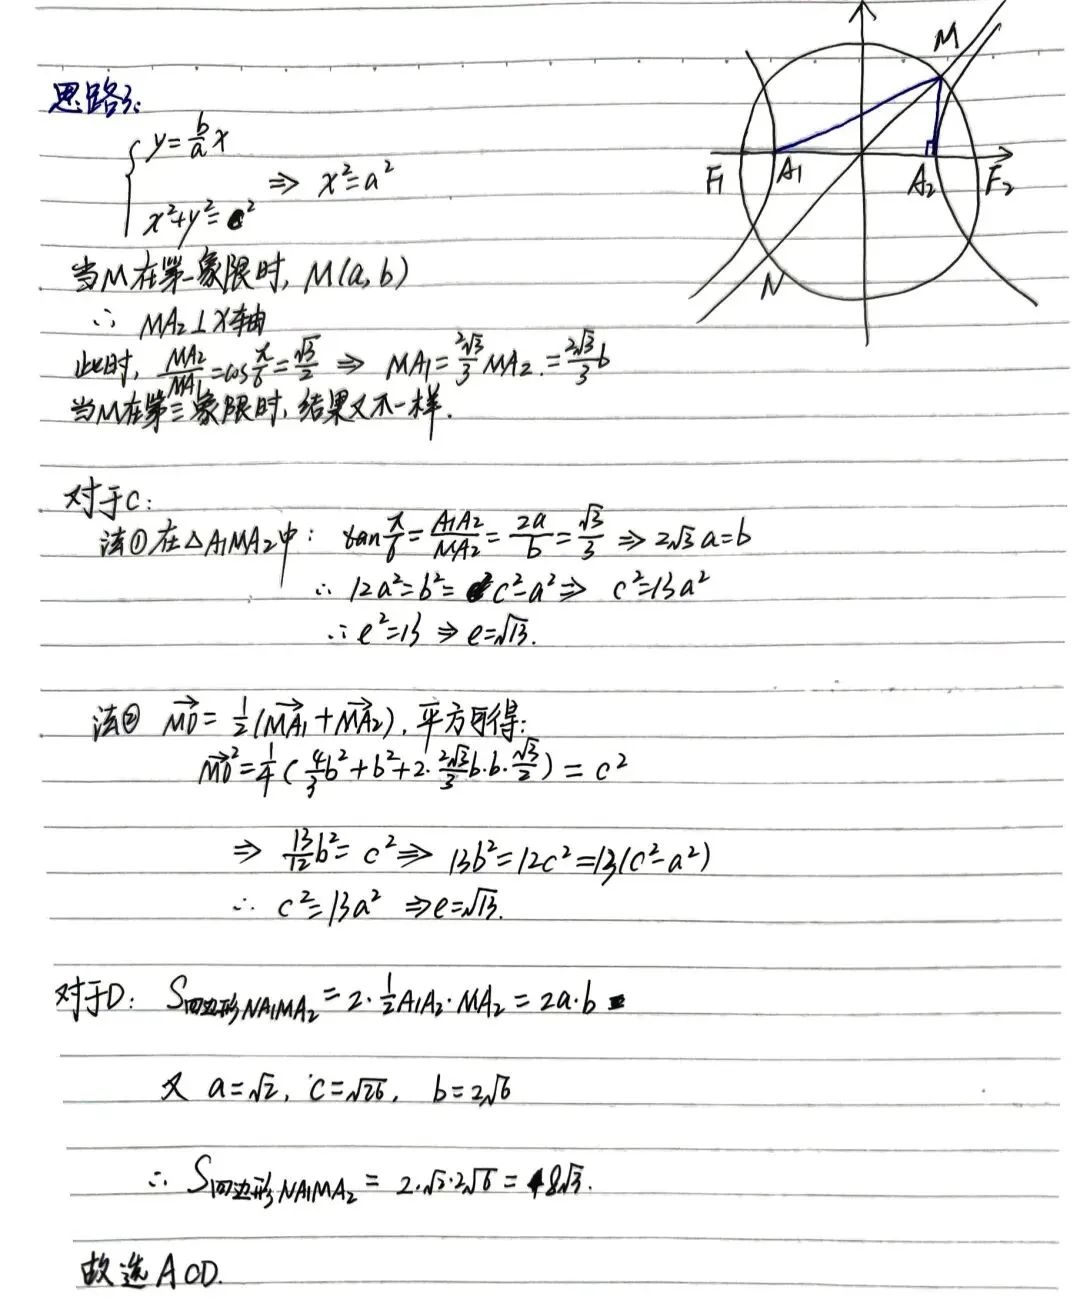 思路3:
y=b/a x
x²+y²=c²
⇒ x²=a²
M
F₁
A₁
A₂
F₂
N
当M在第一象限时, M(a,b)
∴ MA₂⊥X轴
此时, MA₂/MA₁=cos π/6=√3/2 ⇒ MA₁=2√3/3 MA₂.=2√3/3 b
当M在第三象限时,结果又不一样.
对于C:
法①在△A₁MA₂中: tan π/6=A₁A₂/MA₂=2a/b=√3/3 ⇒ 2√3 a=b
∴ 12a²=b²=c²-a² ⇒ c²=13a²
∴ e²=13 ⇒ e=√13.
法② MO→=1/2(MA₁→+MA₂→),平方可得:
MO→²=1/4(4/3b²+b²+2·2√3/3b·b·√3/2)=c²
⇒ 13/12b²=c² ⇒ 13b²=12c²=13(c²-a²)
∴ c²=13a² ⇒e=√13.
对于D: S四边形NA₁MA₂=2·1/2A₁A₂·MA₂=2a·b
又 a=√2, c=√26, b=2√6
∴ S四边形NA₁MA₂=2·√2·2√6=8√3.
故选ACD.